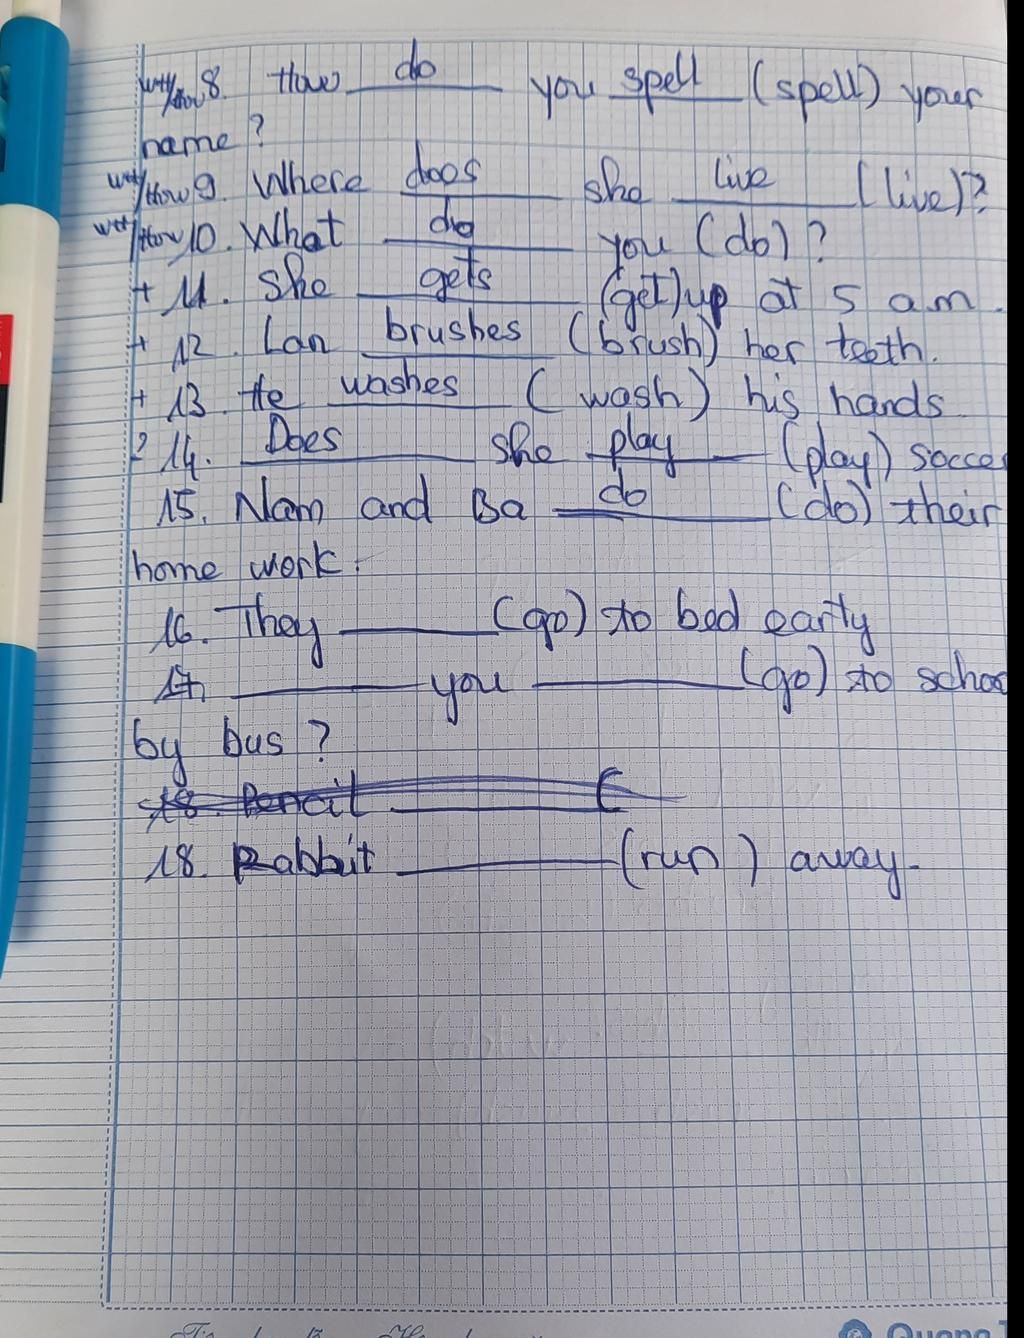 wh/How 8. How do you spell (spell) your
name?
wh/How 9. Where does she live (live)?
wh/How 10. What do you (do)?
+ 11. She gets (get) up at 5 am.
+ 12. Lan brushes (brush) her teeth.
+ 13. He washes (wash) his hands
? 14. Does she play (play) soccer
15. Nam and Ba do (do) their
home work.
16. They ______ (go) to bed early
17. ______ you ______ (go) to schoo
by bus?
18. Pencil ______ (
18. Rabbit ______ (run) away.